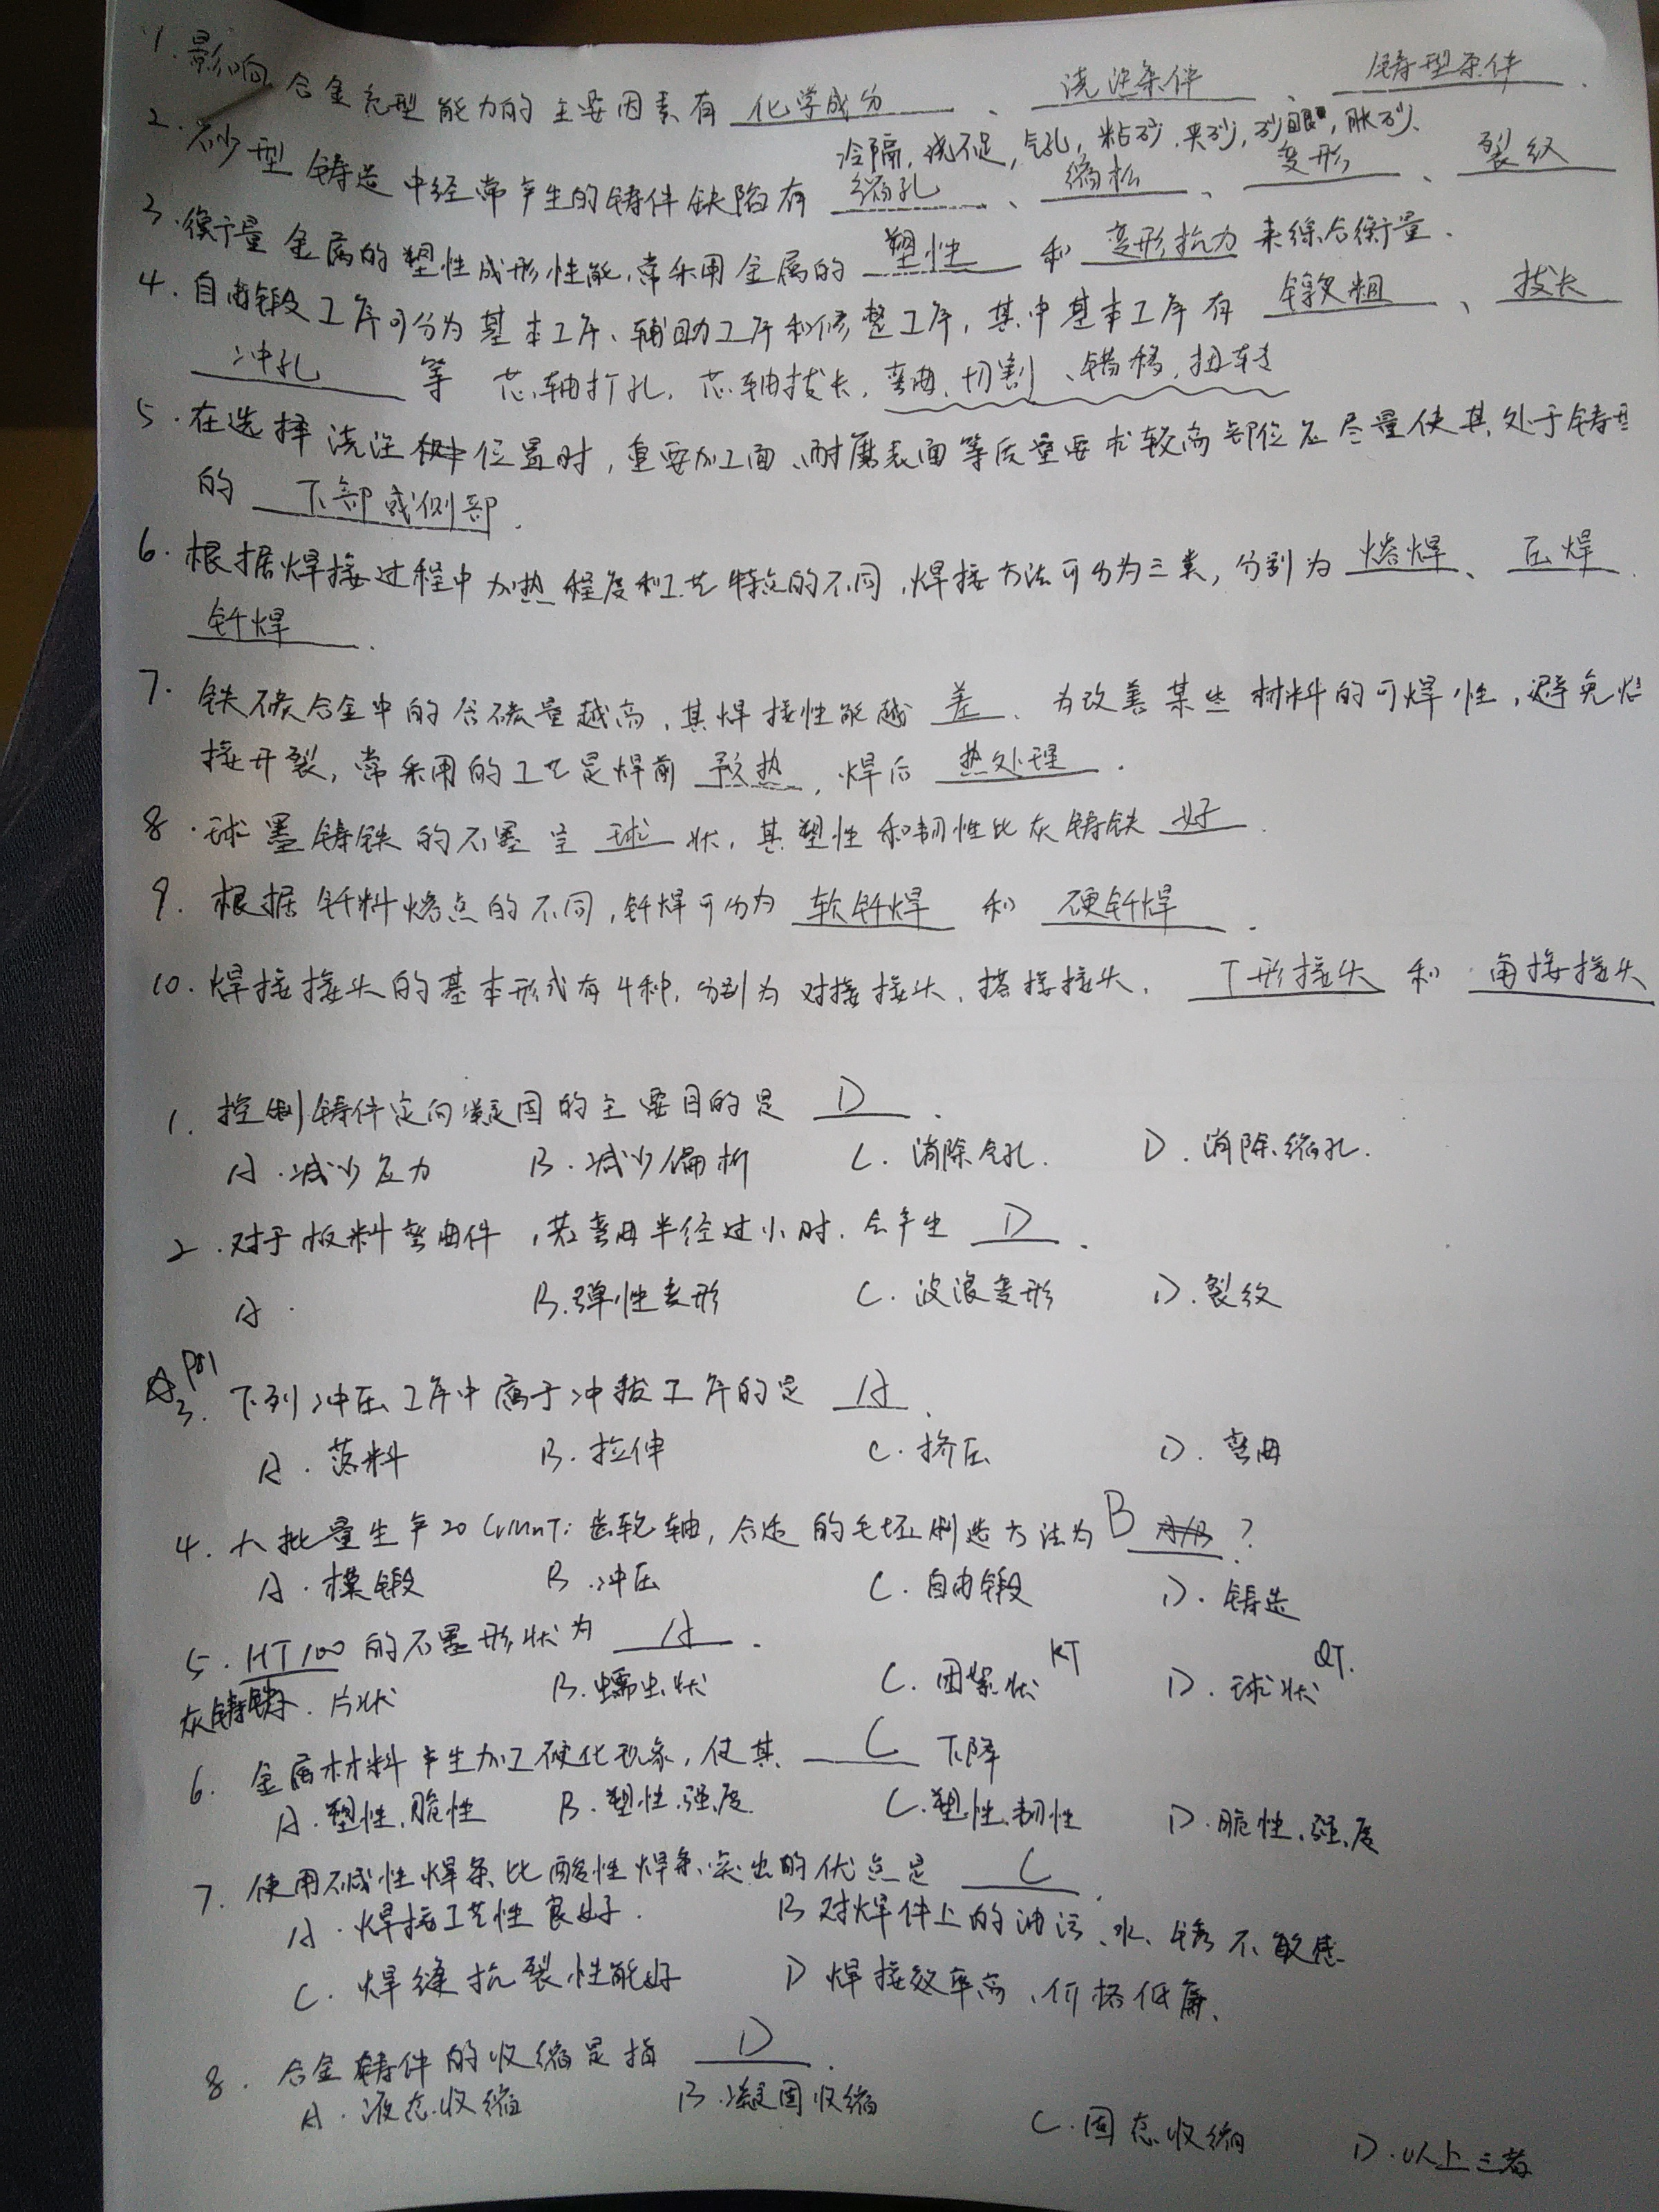 1. 影响合金充型能力的主要因素有 化学成分 、 浇注条件 、 铸型条件 .
冷隔, 浇不足, 气孔, 粘砂, 夹砂, 砂眼, 胀砂、
2. 砂型铸造中经常产生的铸件缺陷有 缩孔 、 缩松 、 变形 、 裂纹
3. 衡量金属的塑性成形性能, 常采用金属的 塑性 和 变形抗力 来综合衡量.
4. 自由锻工序可分为基本工序、辅助工序和修整工序, 其中基本工序有 镦粗 、 拔长
冲孔 等 芯轴扩孔, 芯轴拔长, 弯曲, 切割、错移, 扭转
5. 在选择浇注位置时, 重要加工面、耐磨表面等质量要求较高部位应尽量使其处于铸型
的 下部或侧部 .
6. 根据焊接过程中加热程度和工艺特点的不同, 焊接方法可分为三类, 分别为 熔焊 、 压焊 .
钎焊 .
7. 铁碳合金中的含碳量越高, 其焊接性能越 差 . 为改善某些材料的可焊性, 避免焊
接开裂, 常采用的工艺是焊前 预热 , 焊后 热处理 .
8. 球墨铸铁的石墨呈 球 状, 其塑性和韧性比灰铸铁 好 .
9. 根据钎料熔点的不同, 钎焊可分为 软钎焊 和 硬钎焊 .
10. 焊接接头的基本形式有4种, 分别为对接接头、搭接接头、 T形接头 和 角接接头
1. 控制铸件定向凝固的主要目的是 D .
A. 减少应力 B. 减少偏析 C. 消除气孔. D. 消除缩孔.
2. 对于板料弯曲件, 若弯曲半径过小时, 会产生 D .
A. B. 弹性变形 C. 波浪变形 D. 裂纹
☆
3. 下列冲压工序中属于冲裁工序的是 A .
A. 落料 B. 拉伸 C. 挤压 D. 弯曲
4. 大批量生产20CrMnTi齿轮轴, 合适的毛坯制造方法为 B ?
A. 模锻 B. 冲压 C. 自由锻 D. 铸造
5. HT100的石墨形状为 A .
灰铸铁. 片状 B. 蠕虫状 C. 团絮状 KT D. 球状 QT.
6. 金属材料产生加工硬化现象, 使其 C 下降
A. 塑性、脆性 B. 塑性、强度 C. 塑性、韧性 D. 脆性、强度
7. 使用碱性焊条比酸性焊条突出的优点是 C .
A. 焊接工艺性良好. B 对焊件上的油污、水、锈不敏感
C. 焊缝抗裂性能好 D 焊接效率高、价格低廉、
8. 合金铸件的收缩是指 D .
A. 液态收缩 B. 凝固收缩 C. 固态收缩 D. 以上三者